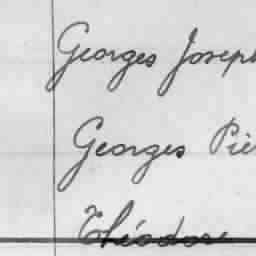 Georges Joseph
Georges Piè
Théodore